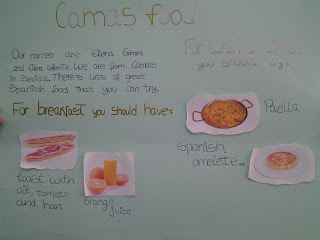 Camas' food
Our names are Elena Gómez
and Elena We are from Camas
in Sevilla. There's lots of great
Spanish food that you can try.
For breakfast you should have:
toast with
oil, tomato
and ham
orange
juice
For lunch or dinner
you should try:
Paella
Spanish
omelette...